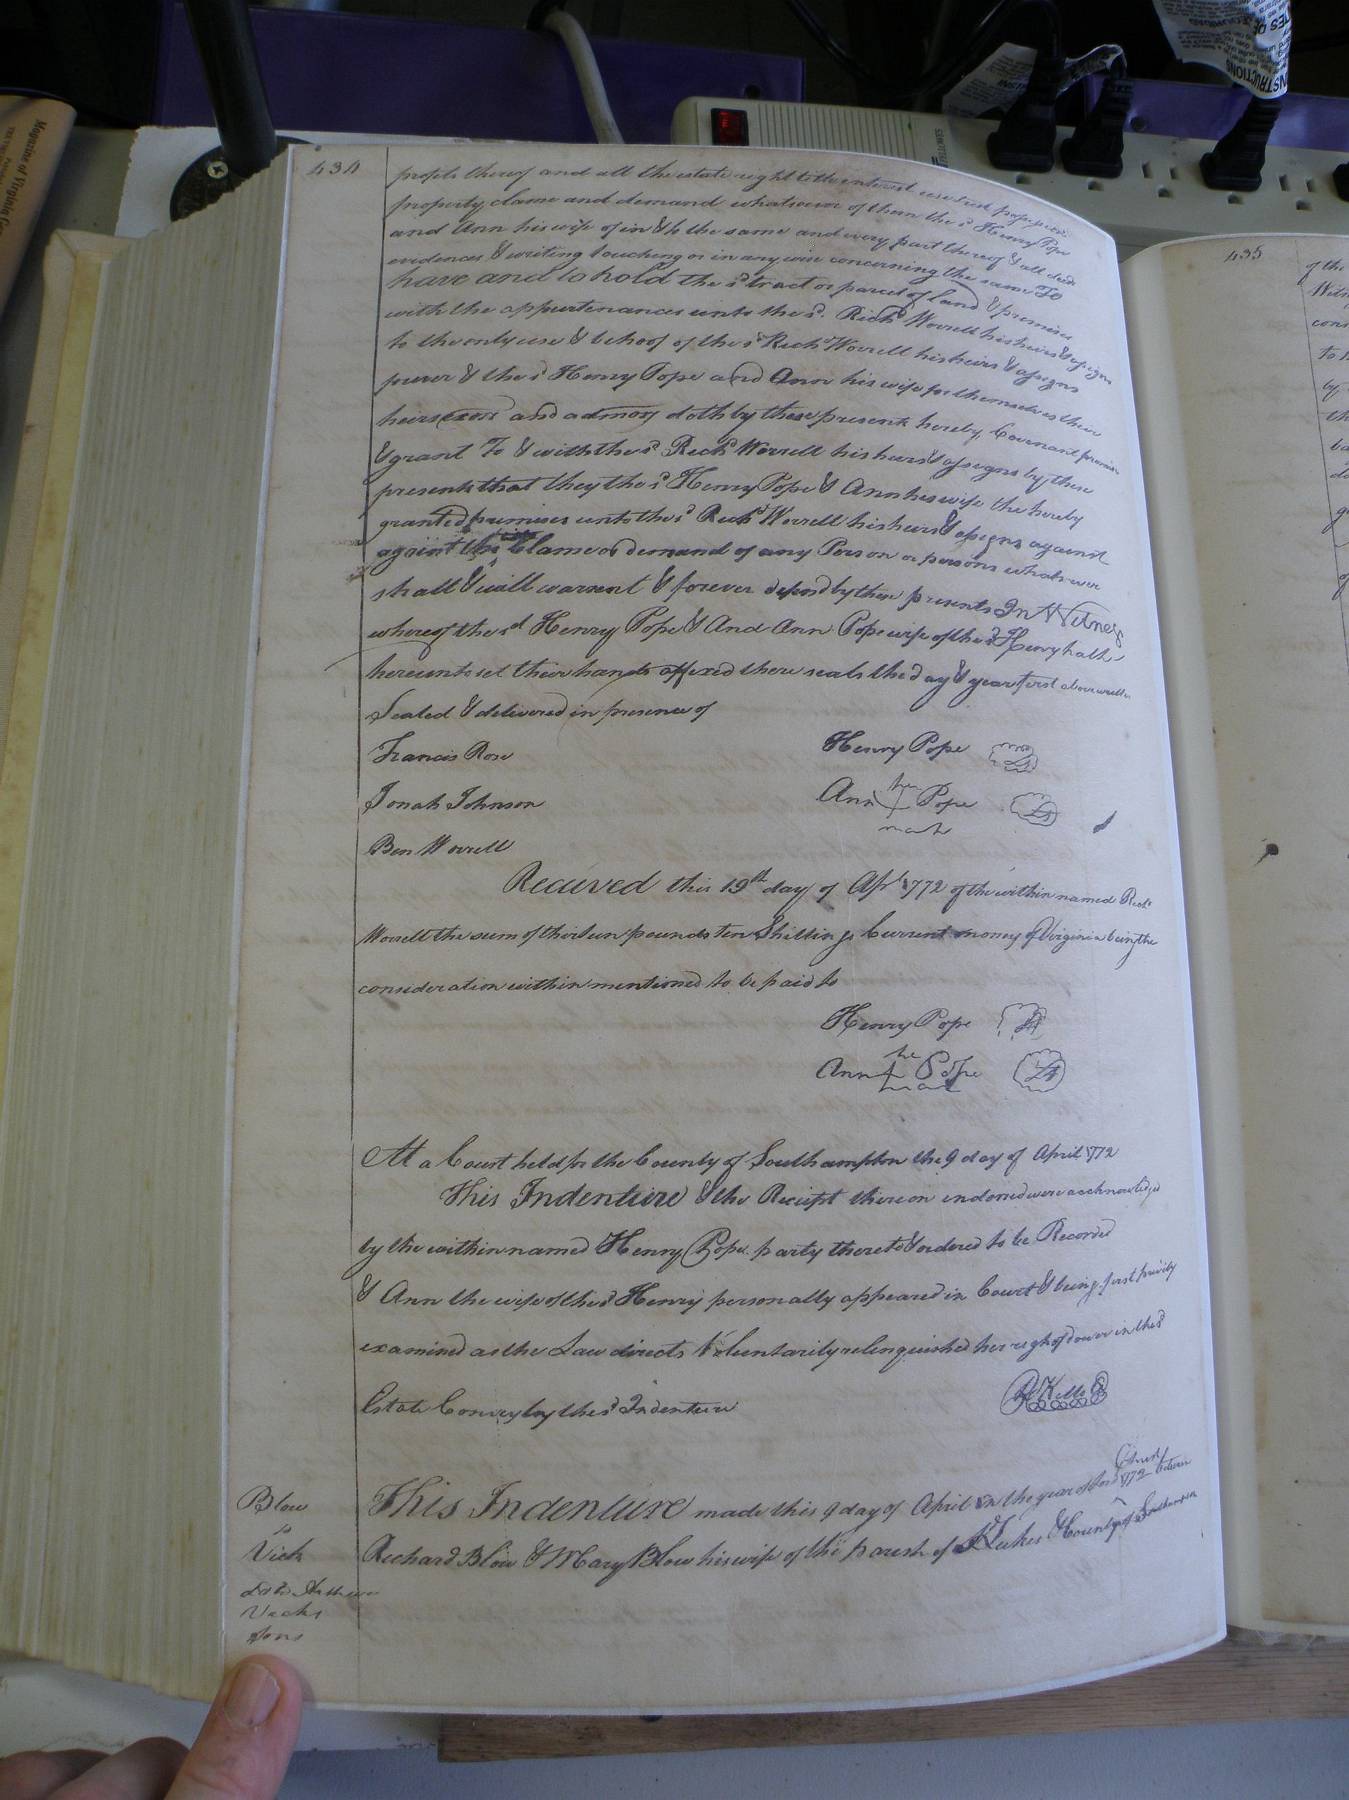 434
profits thereof and all the estate right title interest use trust
property, clame and demand whatsoever of them the sd Henry Pope
and Ann his wife of in & to the same and every part thereof & all deed
evidences & writing touching or in any wise concerning the same To
have and to hold the sd tract or parcel of land & premises
with the appurtenances unto the sd. Richd Worrell his heirs & assigns
to the only use & behoof of the sd Richd Worrell his heirs & assigns
& the sd Henry Pope and Ann his wife for themselves their
heirs exors and admors doth by these presents hereby Covenant promise
& grant To & with the sd Richd Worrell his heirs & assigns by these
presents that they the sd Henry Pope & Ann his wife the hereby
granted premises unto the sd Richd Worrell his heirs & assigns against
against the Clame or demand of any Person or persons whatsoever
shall & will warrent & forever defend by these presents In Witness
whereof the sd Henry Pope & And Ann Pope wife of the sd Henry hath
hereunto set their hands affixed there seals the day & year first above written
Sealed & delivered in presence of
Francis Rose Henry Pope LS
her
Jonah Johnson Ann Pope LS
mark
Ben Worrell
Received this 19th day of Apl 1772 of the within named Richd
Worrell the sum of thirteen pounds ten Shillings Current money of Virginia being the
consideration within mentioned to be paid to
Henry Pope LS
he
Ann Pope LS
mark
At a Court held for the County of Southampton the 9 day of April 1772
This Indenture & the Receipt thereon endorsed were acknowledged
by the within named Henry Pope party thereto & ordered to be Recorded
& Ann the wife of the sd Henry personally appeared in Court & being first privily
examined as the Law directs Voluntarily relinquished her right of dower in the sd
Estate Convey by the sd Indenture
Christ
Blow This Indenture made this 9 day of April in the year of Lord 1772 between
to
Vick Richard Blow & Mary Blow his wife of the parish of St Lukes & County of Southampton
Vicks
Sons
435
of the
to
by
Magazine of Virginia
FELLOWES
INSTRUCTIONS